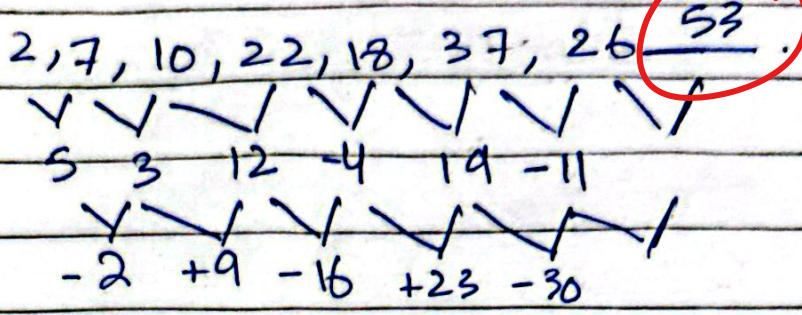 2, 7, 10, 22, 18, 37, 26 53.
5 3 12 -4 19 -11
-2 +9 -16 +23 -30